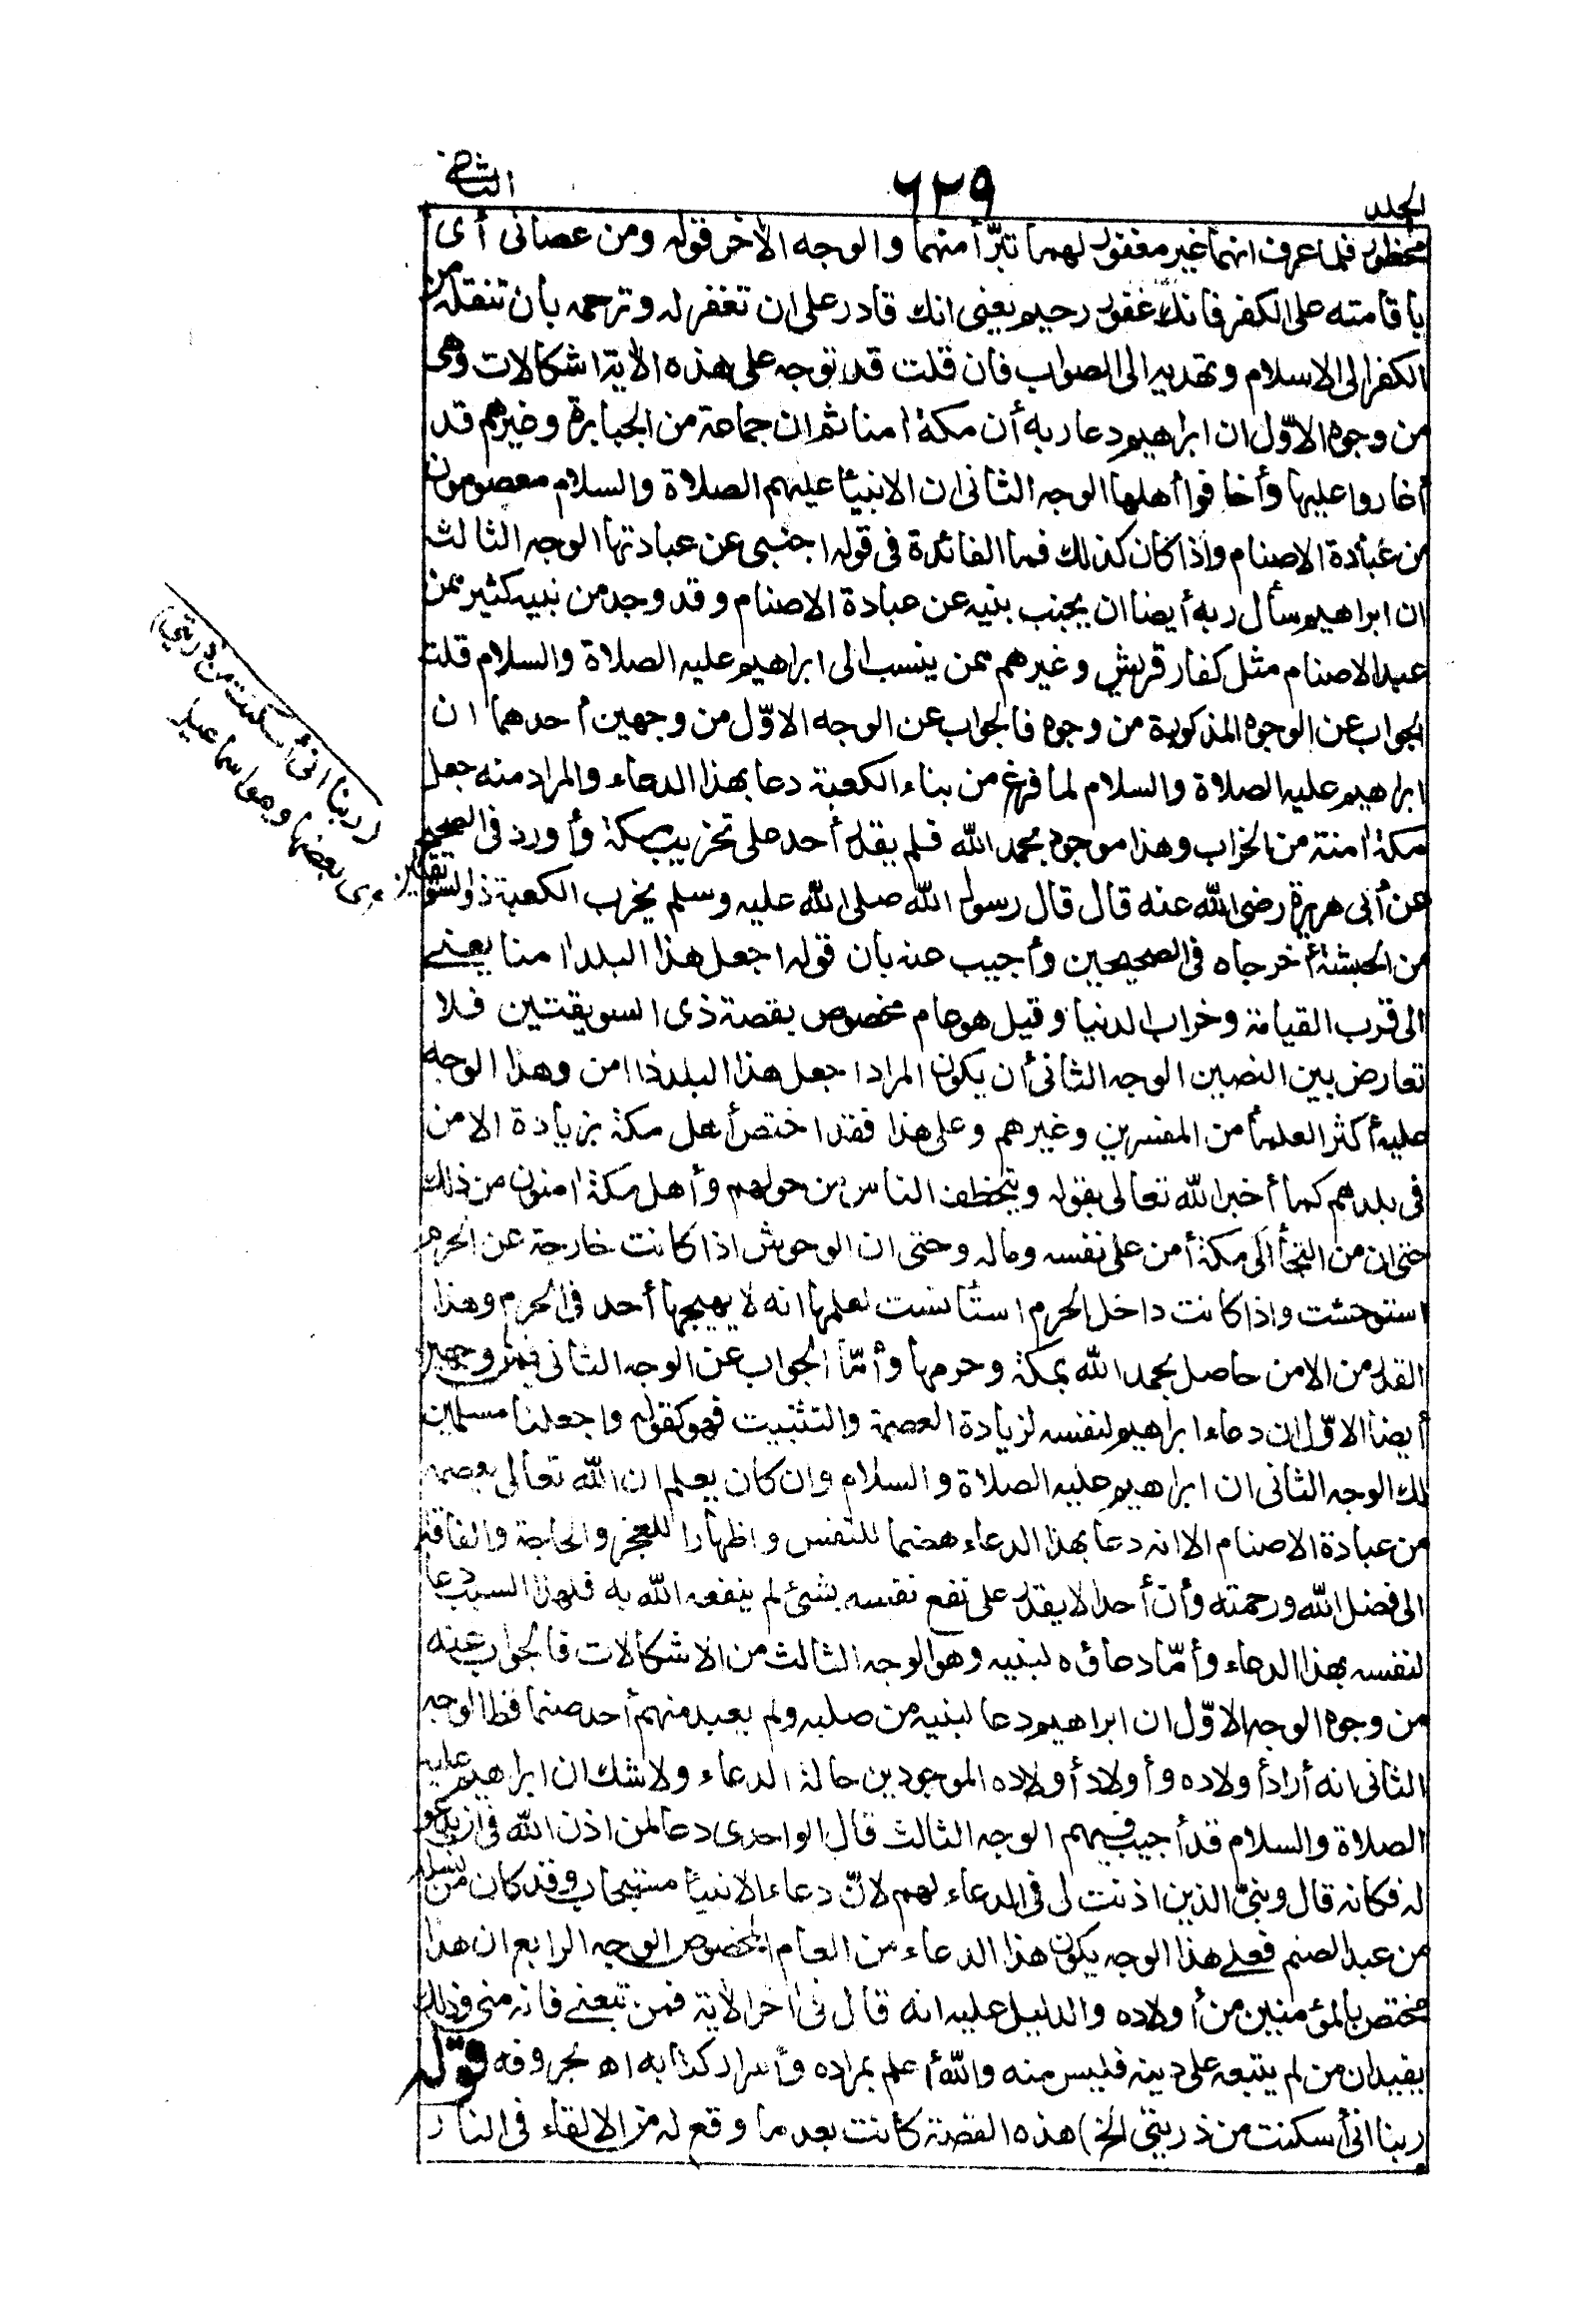 الجلد
٦٢٩
الثانى
محظور فلما عرف انهما غير مغفور لهما تبرّأ منهما والوجه الأخر قوله ومن عصانى أى
باقامته على الكفر فانك غفور رحيم يعنى انك قادر على ان تغفر له وترحمه بان تنقله من
الكفر الى الاسلام وتهديه الى الصواب فان قلت قد توجه على هذه الأية اشكالات وهى
من وجوه الاوّل ان ابراهيم دعا ربه أن مكة امنا ثم ان جماعة من الجبابرة وغيرهم قد
أغاروا عليها وأخافوا أهلها الوجه الثانى ان الانبيأ عليهم الصلاة والسلام معصومون
من عبادة الاصنام واذا كان كذلك فما الفائدة فى قوله اجنبى عن عبادتها الوجه الثالث
ان ابراهيم سأل ربه أيضا ان يجنب بنيه عن عبادة الاصنام وقد وجد من نبيه كثير ممن
عبد الاصنام مثل كفار قريش وغيرهم ممن ينسب الى ابراهيم عليه الصلاة والسلام قلت
الجواب عن الوجوه المذكورة من وجوه فالجواب عن الوجه الاوّل من وجهين أحدهما ان
ابراهيم عليه الصلاة والسلام لما فرغ من بناء الكعبة دعا بهذا الدعاء والمراد منه جعل
مكة امنة من الخراب وهذا موجود بحمد الله فلم يقدر أحد على تخريب مكة وأورد فى الصحيح
عن أبى هريرة رضى الله عنه قال قال رسول الله صلى الله عليه وسلم يخرب الكعبة ذو السويقتين
من الحبشة أخرجاه فى الصحيحين وأجيب عنه بان قوله اجعل هذا البلد امنا يعنى
الى قرب القيامة وخراب الدنيا وقيل هو عام مخصوص بقصة ذى السويقتين فلا
تعارض بين النصين الوجه الثانى أن يكون المراد اجعل هذا البلد ذا امن وهذا الوجه
عليه أكثر العلمأ من المفسرين وغيرهم وعلى هذا فقد اختص أهل مكة بزيادة الامن
فى بلدهم كما أخبر الله تعالى بقوله ويتخطف الناس من حولهم وأهل مكة امنون من ذلك
حتى ان من التجأ الى مكة أمن على نفسه وماله وحتى ان الوحوش اذا كانت خارجة عن الحرم
استوحشت واذا كانت داخل الحرم استأنست لعلمها انه لا يهيجها أحد فى الحرم وهذا
القدر من الامن حاصل بحمد الله بمكة وحرمها وأمّا الجواب عن الوجه الثانى فمن وجهين
أيضا الاوّل ان دعاء ابراهيم لنفسه لزيادة العصمة والتثبيت فهو كقوله واجعلنا مسلمين
لك الوجه الثانى ان ابراهيم عليه الصلاة والسلام وان كان يعلم ان الله تعالى يعصمه
من عبادة الاصنام الا انه دعا بهذا الدعاء هضما للنفس واظهارا للعجز والحاجة والفاقة
الى فضل الله ورحمته وأن أحدا لا يقدر على نفع نفسه بشئ لم ينفعه الله به فلهذا السبب دعا
لنفسه بهذا الدعاء وأمّا دعاؤه لبنيه وهو الوجه الثالث من الاشكالات فالجواب عنه
من وجوه الوجه الاوّل ان ابراهيم دعا لبنيه من صلبه ولم يعبد منهم أحد صنما قط الوجه
الثانى انه أراد أولاده وأولاد أولاده الموجودين حالة الدعاء ولا شك ان ابراهيم عليه
الصلاة والسلام قد أجيب فيهم الوجه الثالث قال الواحدى دعا لمن اذن الله فى ان يدعو
له فكانه قال وبنىّ الذين اذنت لى فى الدعاء لهم لانّ دعاء الانبيأ مستجاب وقد كان من نسله
من عبد الصنم فعلى هذا الوجه يكون هذا الدعاء من العام المخصوص الوجه الرابع ان هذا
مختص بالمؤمنين من أولاده والدليل عليه انه قال فى اخر الأية فمن تبعنى فانه منى وذلك
يفيد ان من لم يتبعه على دينه فليس منه والله أعلم بمراده وأسرار كتابه اه بحروفه قوله
ربنا انى أسكنت من ذريتى الخ) هذه القصة كانت بعد ما وقع له من الالقاء فى النار
(ربنا انى أسكنت من ذريتى)
أى بعضها وهو اسماعيل